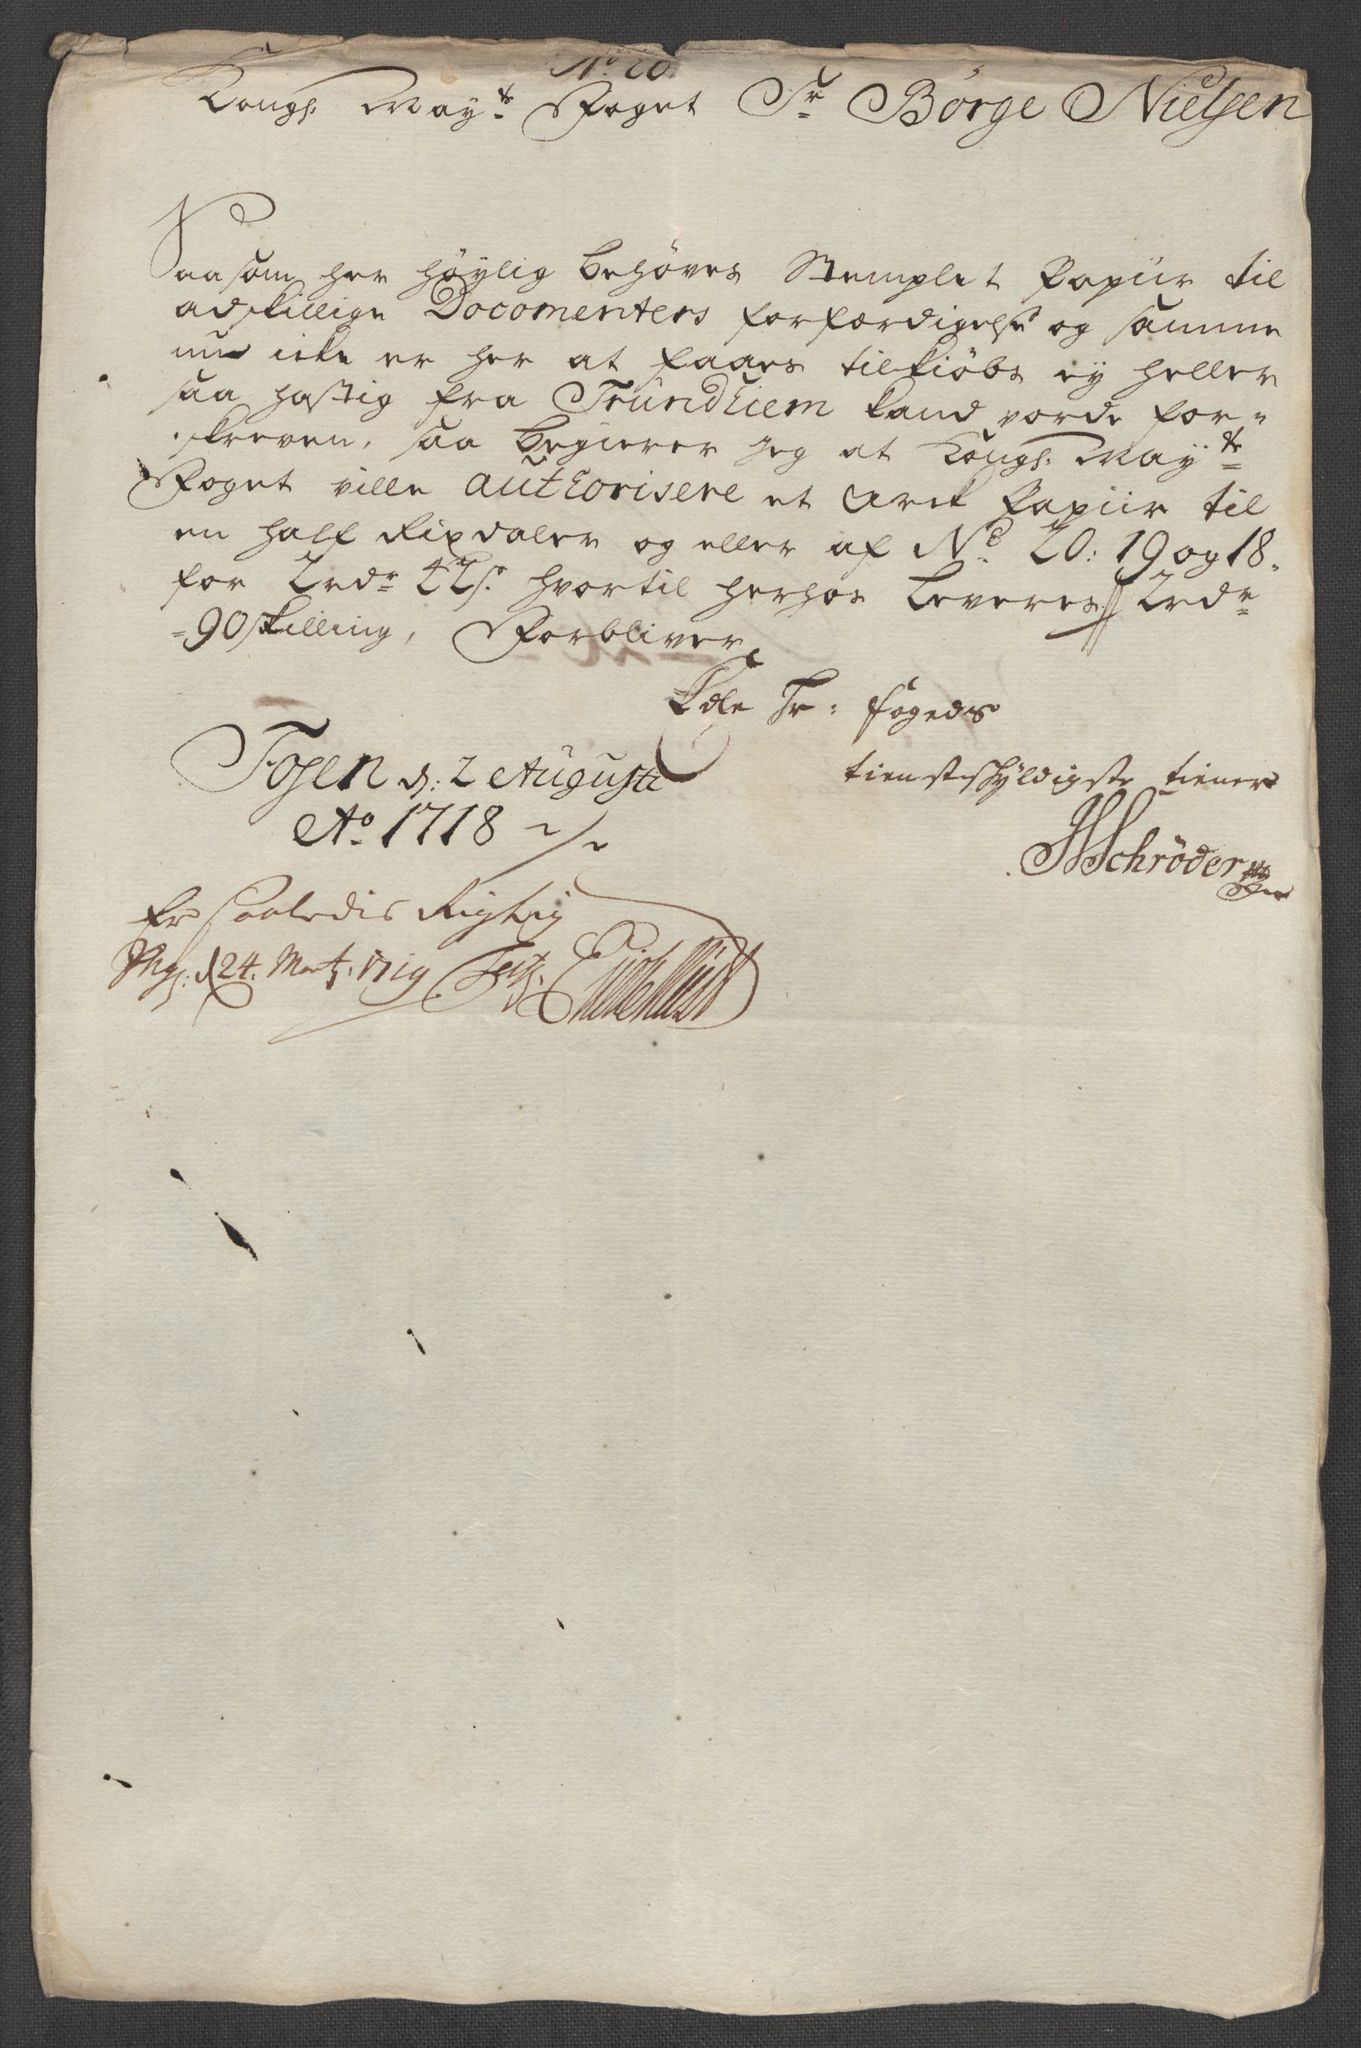 No 20.
Kongl: May:ts Foget Sr Börge Nielsen
Saasom her höylig behöves Stemplet Papiir til
adskillige Docomenters forfærdigelse og samme
nu icke er her at faaes tilkiöbs ey heller
saa hastig fra Trundhiem kand vorde for=
skreven, saa begierer jeg at Kongl: May:ts
Foget ville authorisere et Arck Papiir til
en half Rixdaler og eller af No 20: 19 og 18.
for 2 rdr 42 s. hvortil herhos leveres 2 rdr
=90 skilling, Forbliver
Edle Hr: Fogeds
Fosen d: 2 Augusti
Ao 1718
tienstskyldigste tiener
Schröder
Er saaledis Rigtig
d 24. Mart. 1719 Test.